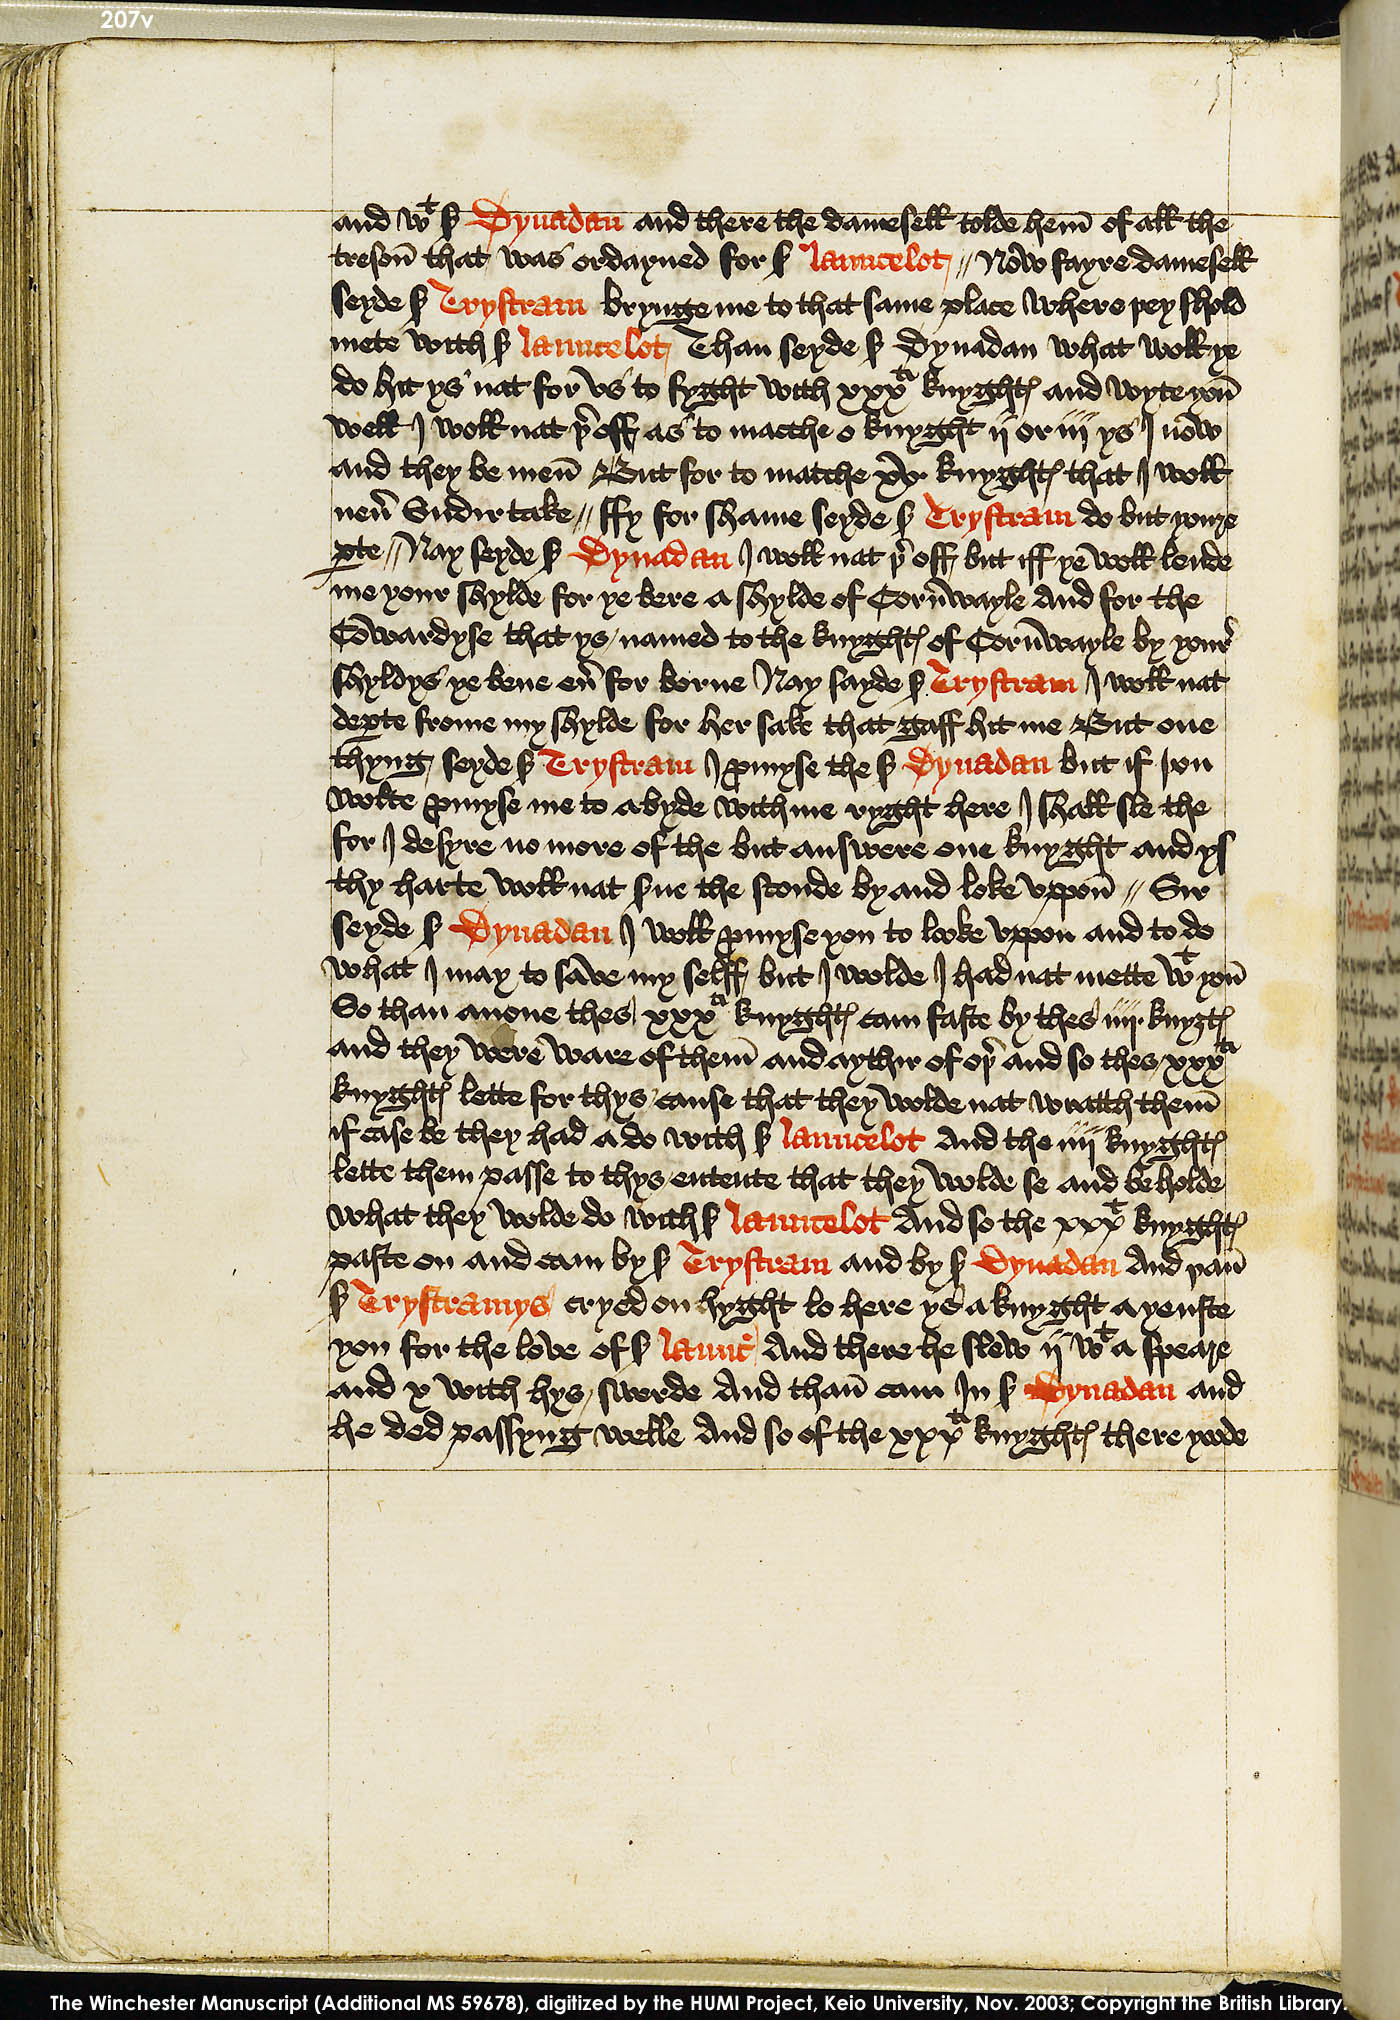 207v
and wᵗ ẜ Dynadan and there the damesell tolde hem̄ of all the
treson̄ that was ordayned for ẜ launcelot // Now fayre damesell
seyde ẜ Trystram brynge me to that same place where þey shold
mete with ẜ launcelot Than seyde ẜ Dynadan what woll ye
do hit ys nat for vs to fyght with xxxᵗⁱ knyghtꝭ and wyte you̅
well I woll nat þ̉off as to macche o knyght ij or iij ys I now
and they be men̄ But for to matche xv knyghtꝭ that I woll
neủ Vndir take // ffy for shame seyde ẜ Trystram do but youre
ꝑte // Nay seyde ẜ Dynadan I woll nat þ̉off but iff ye woll lende
me your shylde for ye bere a shylde of Corn̄wayle And for the
Cowardyse that ys named to the knyghtꝭ of Corn̄wayle by your̉
shyldys ye bene eủ for borne Nay sayde ẜ Trystram I woll nat
deꝑte frome my shylde for her sake that gaff hit me But one
thyng seyde ẜ Trystram I ꝓmyse the ẜ Dynadan but if þou
wolte ꝓmyse me to abyde with me ryght here I shall sle the
for I desyre no more of the but answere one knyght and yf
thy harte woll nat ẜue the stonde by and loke vppon̄ // Sir
seyde ẜ Dynadan I woll ꝓmyse you to looke vppon and to do
what I may to save my selff but I wolde I had nat mette wᵗ you̅
So than anone thes xxxᵗⁱ knyghtꝭ cam faste by thes iiij knyȝtꝭ
and they were ware of them̄ and aythir of oþ̉ and so thes xxxᵗⁱ
knyghtꝭ lette for thys cause that they wolde nat wratth them̄
if case be they had a do with ẜ launcelot And the iiij knyghtꝭ
lette them passe to thys entente that they wolde se and beholde
what they wolde do with ẜ launcelot And so the xxxᵗⁱ knyghtꝭ
paste on and cam by ẜ Trystram and by ẜ Dynadan And þan̄
ẜ Trystramys cryed on hyght lo here ys a knyght ayenste
you for the love of ẜ launc̉ And there he slew ij wᵗ a speare
and x with hys swerde And than̄ cam In ẜ Dynadan and
he ded passyng welle And so of the xxxᵗⁱ knyghtꝭ there yode
The Winchester Manuscript (Additional MS 59678), digitized by the HUMI Project, Keio University, Nov. 2003; Copyright the British Library.